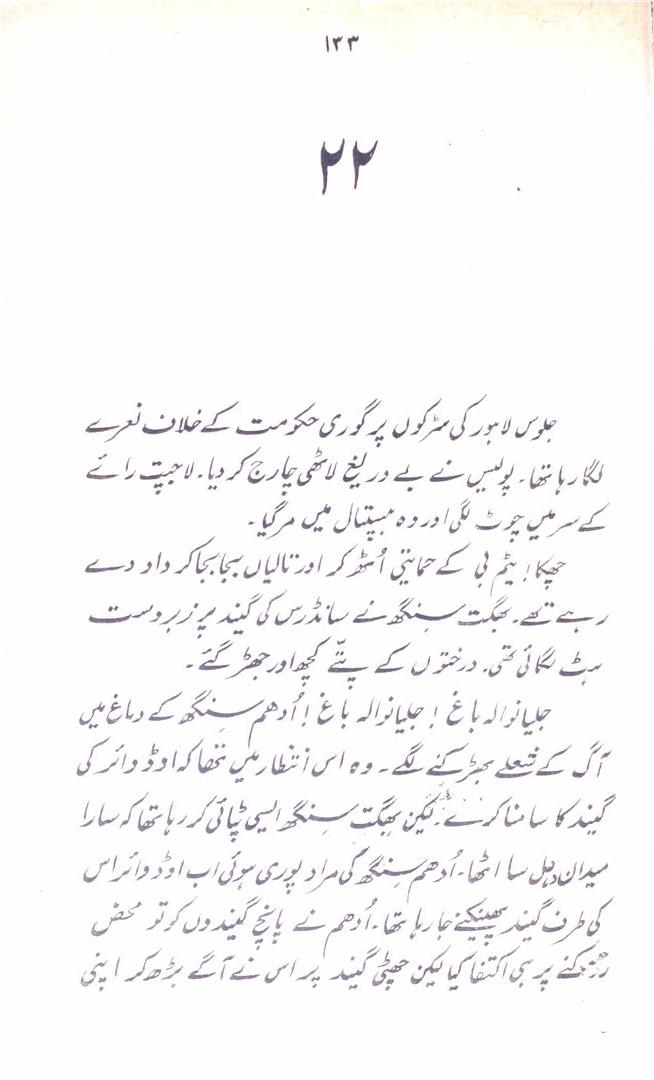 ۱۳۳
۲۲
جلوس لاہور کی سڑکوں پر گوری حکومت کے خلاف نعرے
لگا رہا تھا۔ پولیس نے بے دریغ لاٹھی چارج کر دیا۔ لاجپت رائے
کے سر میں چوٹ لگی اور وہ ہسپتال میں مر گیا۔
چھکا! یٹم بی کے حمایتی اُٹھ کر اور تالیاں بجا بجا کر داد دے
رہے تھے۔ بھگت سنگھ نے سانڈرس کی گیند پر زبردست
ہٹ لگائی تھی۔ درختوں کے پتّے کچھ اور جھڑ گئے۔
جلیانوالہ باغ! جلیانوالہ باغ! اُدھم سنگھ کے دماغ میں
آگ کے شعلے بھڑکنے لگے۔ وہ اس انتظار میں تھا کہ اوڈوائر کی
گیند کا سامنا کرے۔ لیکن بھگت سنگھ ایسی ٹپائی کر رہا تھا کہ سارا
میدان دہل سا اٹھا۔ اُدھم سنگھ کی مراد پوری ہوئی اب اوڈوائر اس
کی طرف گیند پھینکنے جا رہا تھا۔ اُدھم نے پانچ گیندوں کو تو محض
روکنے پر ہی اکتفا کیا لیکن چھٹی گیند پر اس نے آگے بڑھ کر اپنی